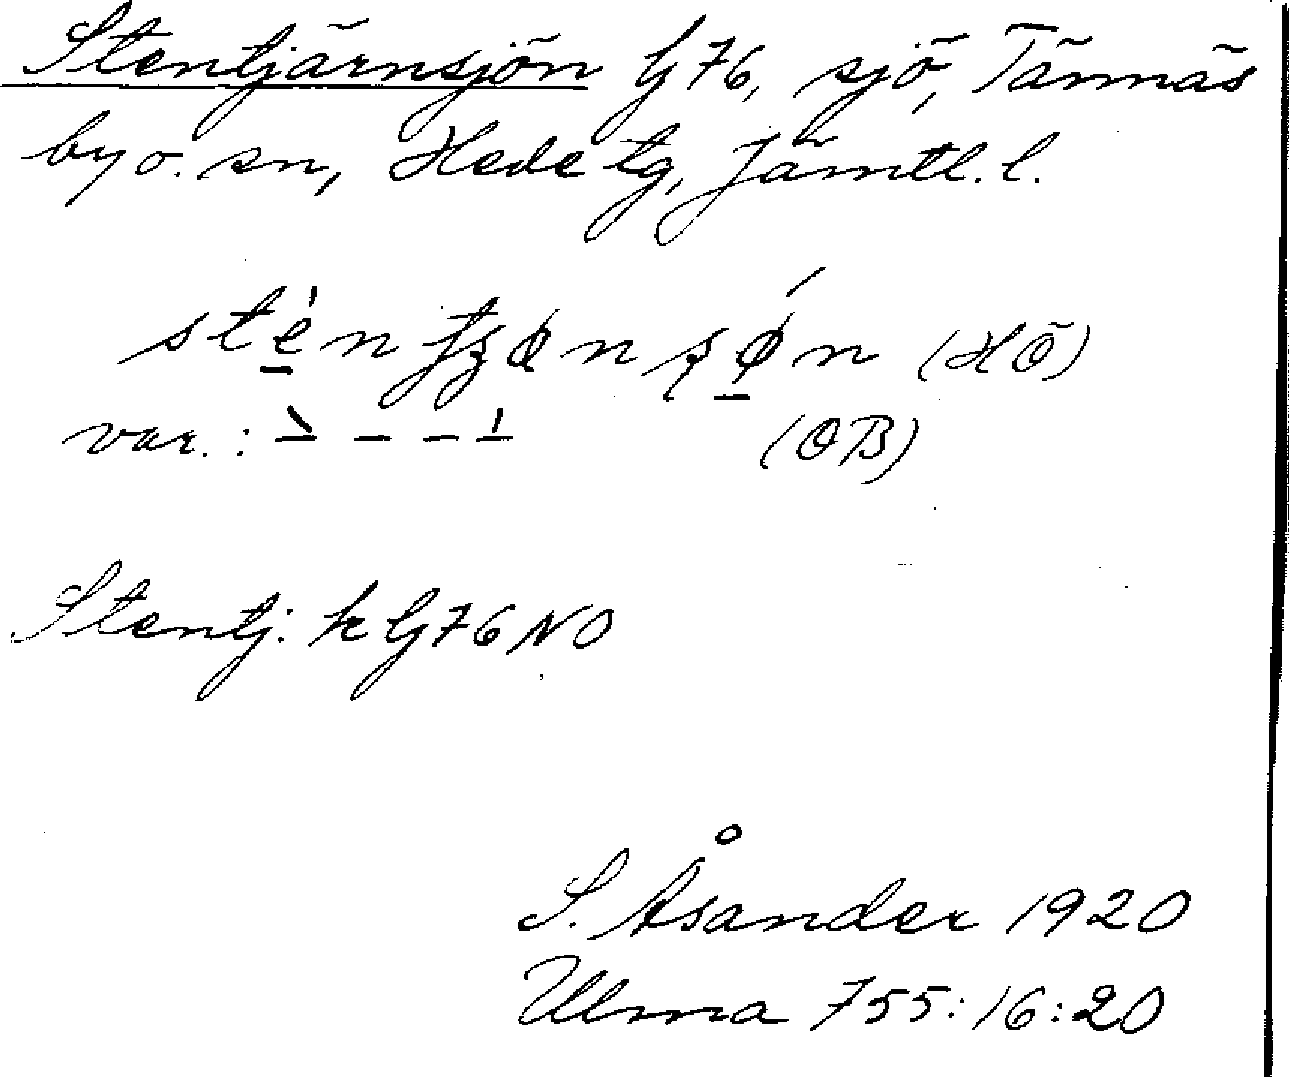 Stentjärnsjön G 76, sjö, Tännäs
by o. sn, Hede tg, Jämtl. l.
(HÖ)
var.: (OB)
Stentj: k G 76 NO
S. Åsander 1920
Ulma 755:16:20